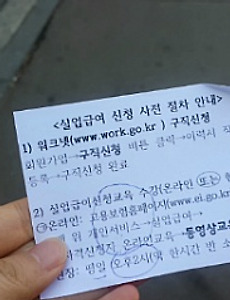 <실업급여 신청 사전 절차 안내>
1) 워크넷(www.work.go.kr) 구직신청
회원가입→구직신청 버튼 클릭→이력서 작
등록→구직신청 완료
2) 실업급여신청교육 수강(온라인 또는
온라인: 고용보험홈페이지(www.ei.go.kr
개인서비스→실업급여→
자격신청자 온라인교육→동영상교육
평일 오후2시 한시간 반 소